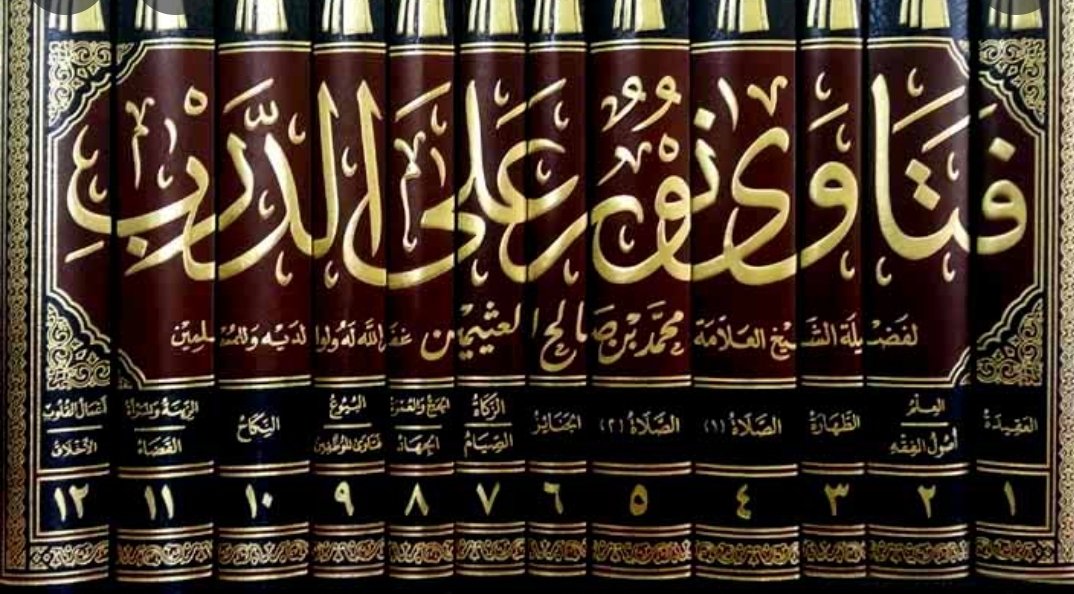 فَتَاوَىٰ نُورٌ عَلَى الدَّرْبِ
لفَضِيلَة الشَّيخ العَلَّامَة محمَّد بن صَالح العثيمين غفَر اللَّه لَهُ ولوالدَيه وَللمُسلمِين
العَقِيدَةُ
العِلْمُ
أُصُولُ الفِقْهِ
الطَّهَارَةُ
الصَّلَاةُ (١)
الصَّلَاةُ (٢)
الجَنَائِزُ
الزَّكَاةُ
الصِّيَامُ
الحَجُّ وَالعُمْرَةُ
الجِهَادُ
البُيُوعُ
فَتَاوَى المُوَظَّفِينَ
النِّكَاحُ
الزِّينَةُ وَالمَرْأَةُ
القَضَاءُ
أَعْمَالُ القُلُوبِ
الأَخْلَاقُ
١ ٢ ٣ ٤ ٥ ٦ ٧ ٨ ٩ ١٠ ١١ ١٢